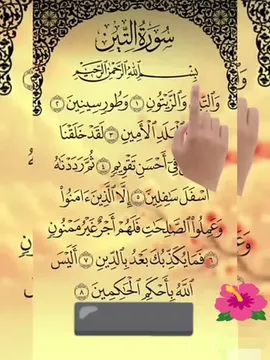 سُورَةُ التِّينِ
بِسْمِ اللَّهِ الرَّحْمَٰنِ الرَّحِيمِ
وَالتِّينِ وَالزَّيْتُونِ ١ وَطُورِ سِينِينَ ٢
الْبَلَدِ الْأَمِينِ ٣ لَقَدْ خَلَقْنَا
فِي أَحْسَنِ تَقْوِيمٍ ٤ ثُمَّ رَدَدْنَاهُ
أَسْفَلَ سَافِلِينَ ٥ إِلَّا الَّذِينَ آمَنُوا
وَعَمِلُوا الصَّالِحَاتِ فَلَهُمْ أَجْرٌ غَيْرُ مَمْنُونٍ
٦ فَمَا يُكَذِّبُكَ بَعْدُ بِالدِّينِ ٧ أَلَيْسَ
اللَّهُ بِأَحْكَمِ الْحَاكِمِينَ ٨